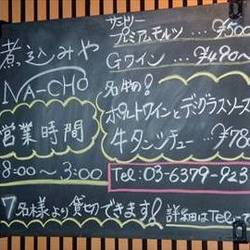 煮込みや
NA-CHO
営業時間
8:00～3:00
サントリー
プレミアムモルツ ¥500
Gワイン ¥490
名物の!
ポルトワインとデグラスソース
牛タンシチュー ¥78
Tel:03-6379-923
7名様より貸切できます! 詳細はTel